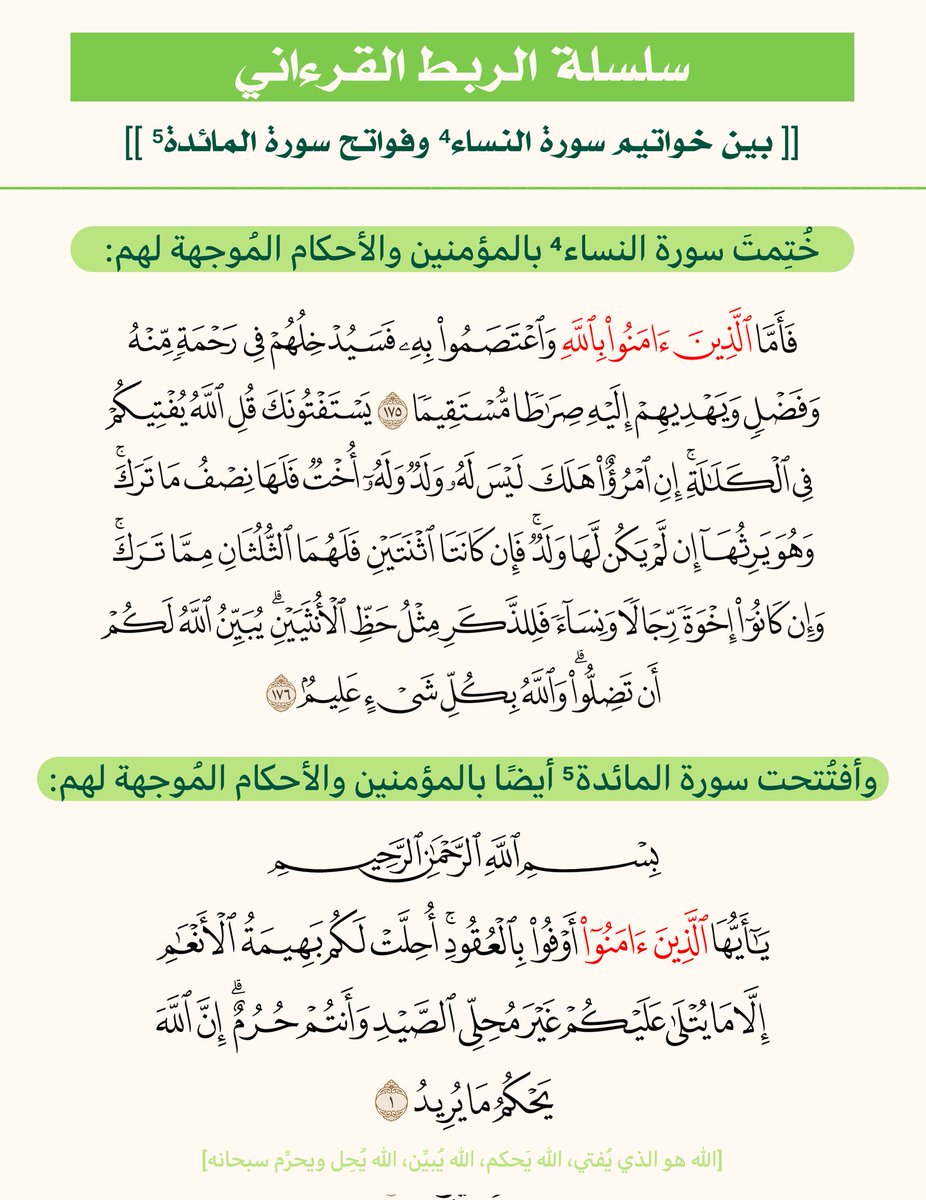 سلسلة الربط القرءاني
[[ بين خواتيم سورة النساء⁴ وفواتح سورة المائدة⁵ ]]
خُتِمتَ سورة النساء⁴ بالمؤمنين والأحكام المُوجهة لهم:
فَأَمَّا ٱلَّذِينَ ءَامَنُوا۟ بِٱللَّهِ وَٱعْتَصَمُوا۟ بِهِۦ فَسَيُدْخِلُهُمْ فِى رَحْمَةٍ مِّنْهُ
وَفَضْلٍ وَيَهْدِيهِمْ إِلَيْهِ صِرَٰطًا مُّسْتَقِيمًا ١٧٥ يَسْتَفْتُونَكَ قُلِ ٱللَّهُ يُفْتِيكُمْ
فِى ٱلْكَلَٰلَةِ ۚ إِنِ ٱمْرُؤٌا۟ هَلَكَ لَيْسَ لَهُۥ وَلَدٌ وَلَهُۥٓ أُخْتٌ فَلَهَا نِصْفُ مَا تَرَكَ ۚ
وَهُوَ يَرِثُهَآ إِن لَّمْ يَكُن لَّهَا وَلَدٌ ۚ فَإِن كَانَتَا ٱثْنَتَيْنِ فَلَهُمَا ٱلثُّلُثَانِ مِمَّا تَرَكَ ۚ
وَإِن كَانُوٓا۟ إِخْوَةً رِّجَالًا وَنِسَآءً فَلِلذَّكَرِ مِثْلُ حَظِّ ٱلْأُنثَيَيْنِ ۗ يُبَيِّنُ ٱللَّهُ لَكُمْ
أَن تَضِلُّوا۟ ۗ وَٱللَّهُ بِكُلِّ شَىْءٍ عَلِيمٌۢ ١٧٦
وأفتُتحت سورة المائدة⁵ أيضًا بالمؤمنين والأحكام المُوجهة لهم:
بِسْمِ ٱللَّهِ ٱلرَّحْمَٰنِ ٱلرَّحِيمِ
يَٰٓأَيُّهَا ٱلَّذِينَ ءَامَنُوٓا۟ أَوْفُوا۟ بِٱلْعُقُودِ ۚ أُحِلَّتْ لَكُم بَهِيمَةُ ٱلْأَنْعَٰمِ
إِلَّا مَا يُتْلَىٰ عَلَيْكُمْ غَيْرَ مُحِلِّى ٱلصَّيْدِ وَأَنتُمْ حُرُمٌ ۗ إِنَّ ٱللَّهَ
يَحْكُمُ مَا يُرِيدُ ١
[الله هو الذي يُفتي، الله يَحكم، الله يُبيِّن، الله يُحِل ويحرِّم سبحانه]